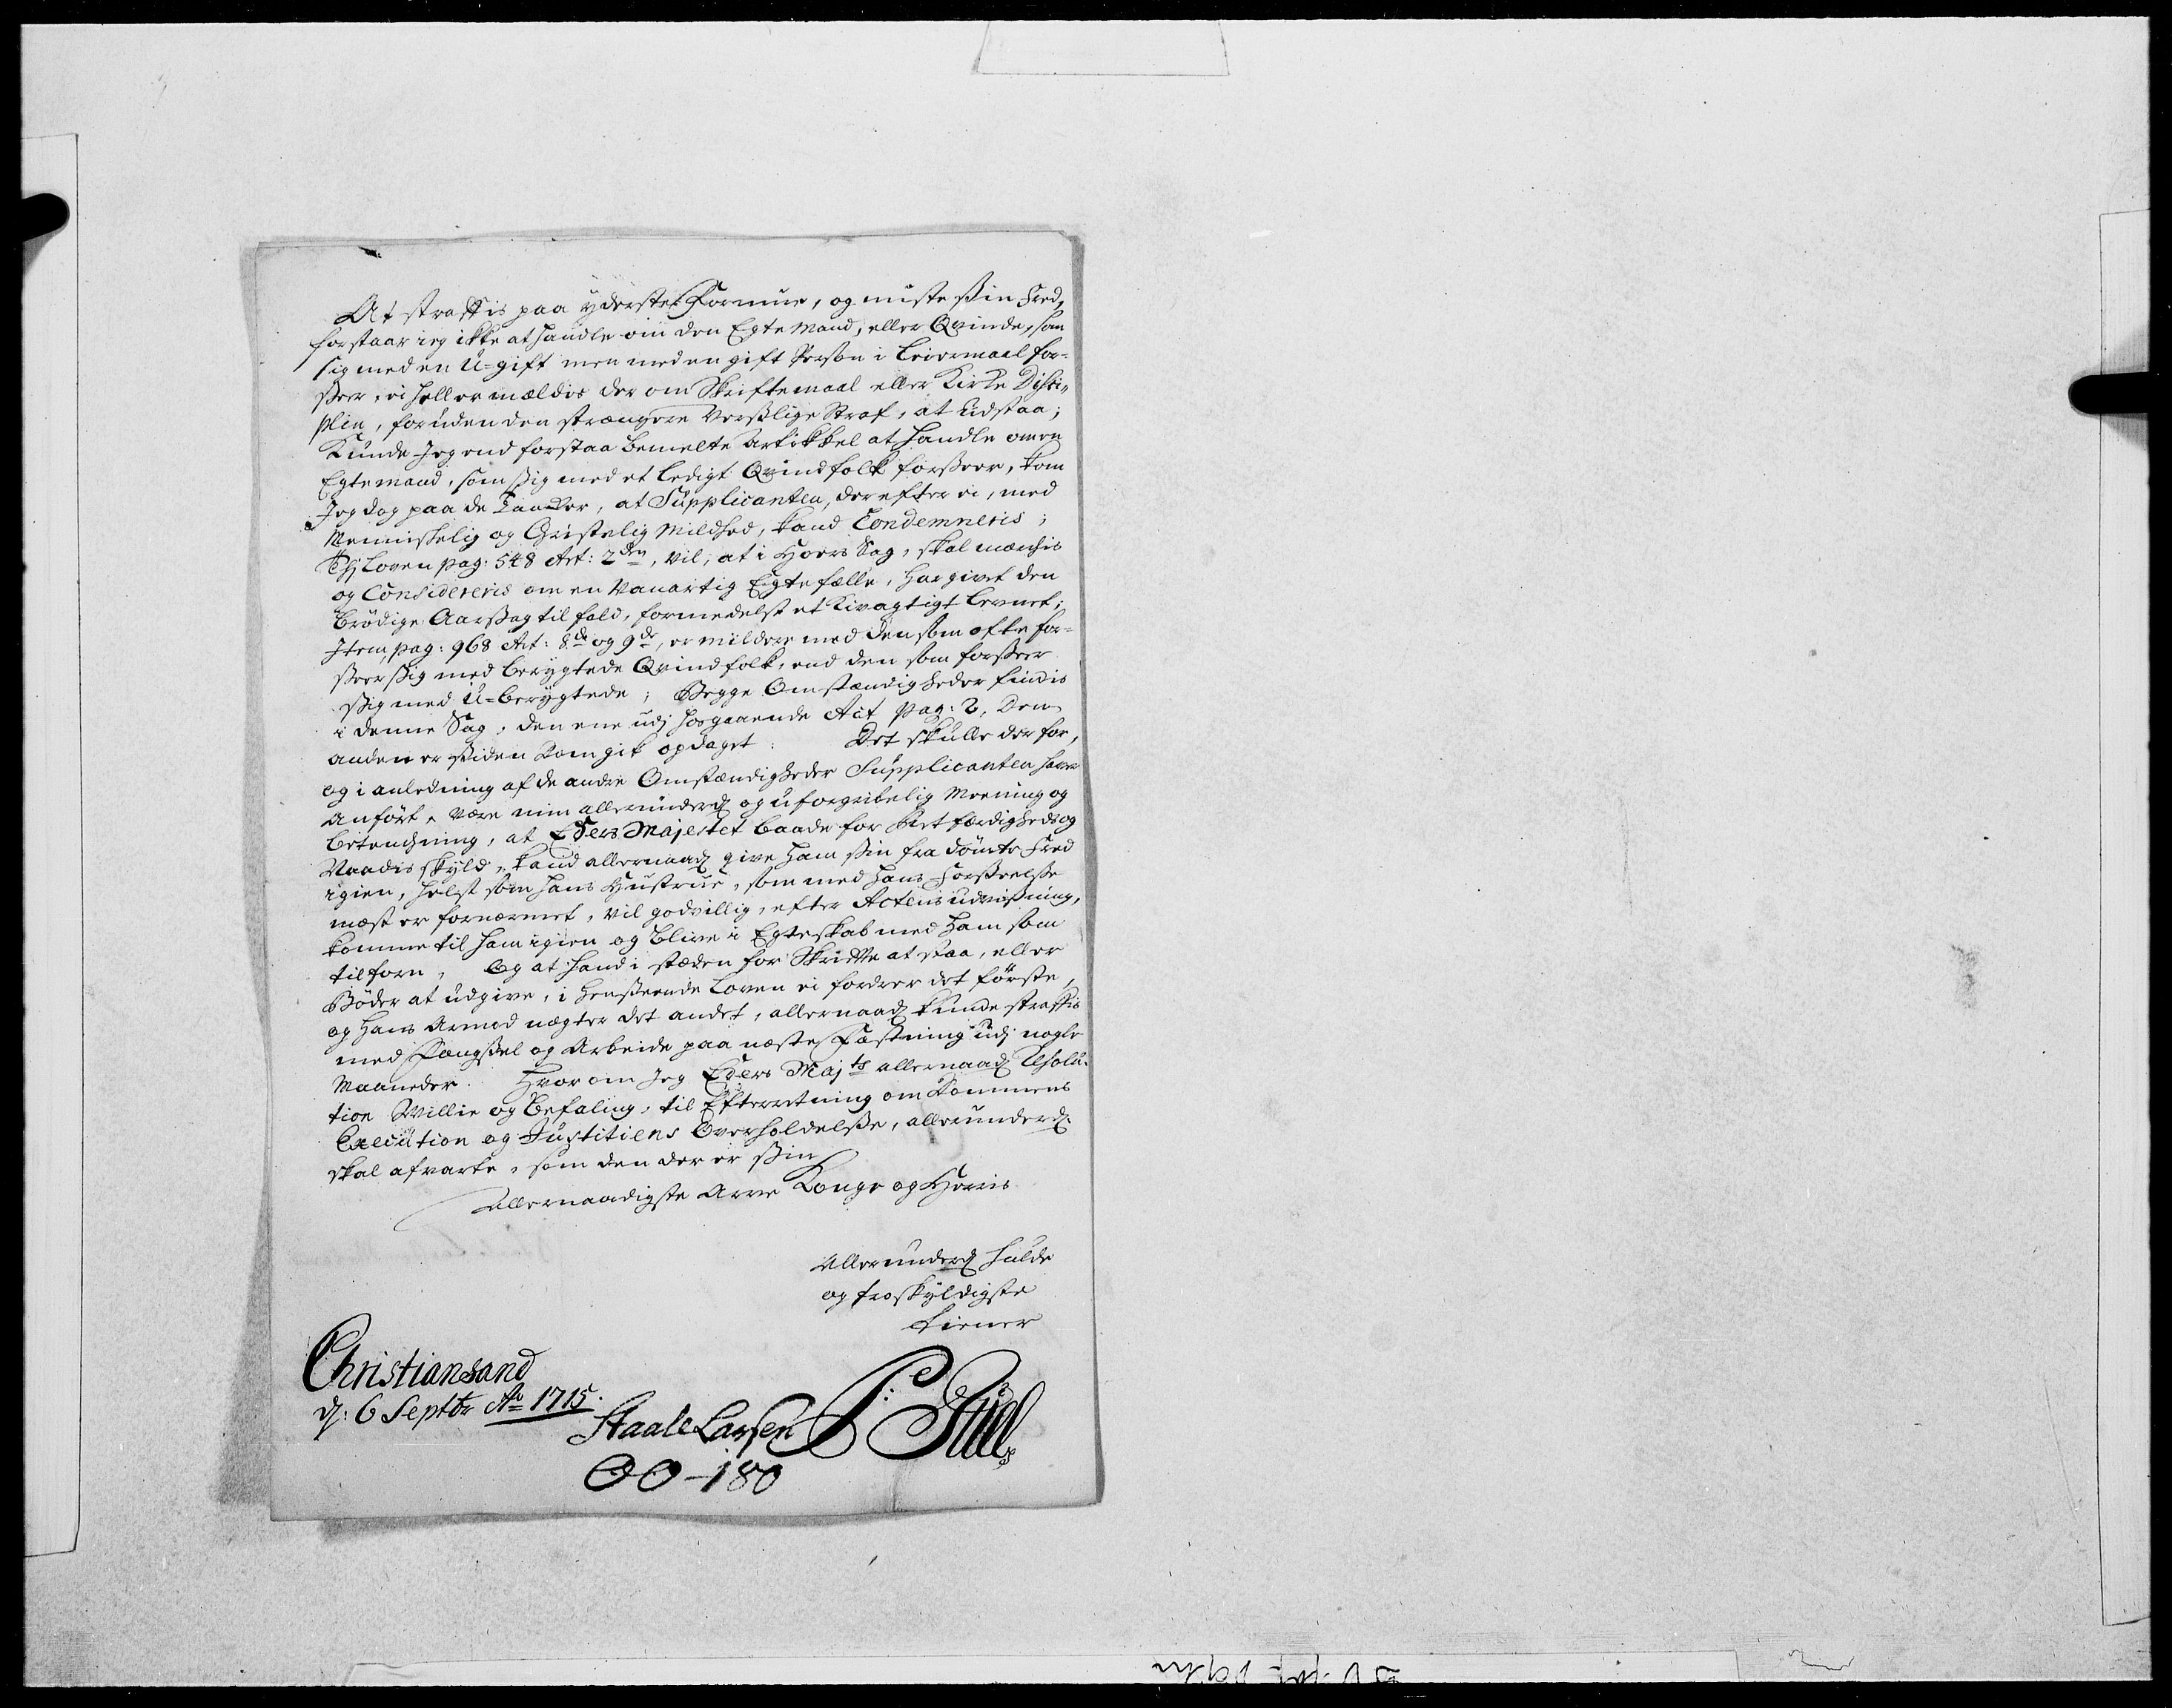 At straffis paa yderste Formue, og miste sin Fred,
forstaar ieg ikke at handle om den Egte Mand, eller Qvinde, som
sig med en U-gift men med en gift Person i Leiermaal for-
seer, ei heller meldis der om Skriftemaal eller Kirke Disci-
plin, foruden den strængere Verslige Straf, at udstaa;
Kunde Jeg end forstaa bemelte Artikkel at handle om en
Egtemand, som sig med et ledigt Qvindfolk forseer, kom
Jeg dog paa de Tancker, at Supplicanten, derefter ei, med
Menniskelig og Christelig Mildhed, kand Condemneris;
Thj Loven pag: 548 Art: 2den, vil, at i Hoers Sag, skal merchis
og Considereris om en Vanartig Egtefælle, har givet den
brødige Aarsag til fald, formedelst et Kivagtigt Levnet;
Item pag: 968 Art: 8de og 9de, er mildere med den som ofte for-
seer sig med berygtede Qvindfolk, end den som forseer
sig med U-berygtede; Begge Omstændigheder findis
i denne Sag, den ene udj hosgaaende Act pag: 2, Den
anden er siden Komgik opdaget: Det skulle der for,
og i anledning af de andre Omstændigheder Supplicanten haver
anført, være min allerunderd: og uforgribelig Meening og
betenchning, at Eders Majestet baade for Retfærdigheds og
Naadis skyld, kand allernaad: give ham sin fra dømte Fred
igien, helst som hans Hustrue, som med hans Forseelse
mest er fornermet, vil godvillig, efter Actens udvisning,
komme til ham igien og blive i Egteskab med ham som
tilforn, Og at hand i steden for Skrifte at staa, eller
Bøder at udgive, i henseende Loven ei fordrer det første,
og hans Armod negter det andet, allernaad: kunde straffis
med Fængsel og Arbeide paa neste Fæstning udj nogle
Maaneder. Hvor om Jeg Eders Majts allernaad: Resolu-
tion Willie og Befaling, til Efterretning om Dommens
Execution og Justitiens Overholdelse, allerunderd:
skal afvarte, som den der er sin
Allernaadigste Arve Konge og Herris
Allerunderd: hulde
og troskyldigste
tiener
Christiansand
d: 6 Septbr Ao 1715.
Staale Larsen
OO-180